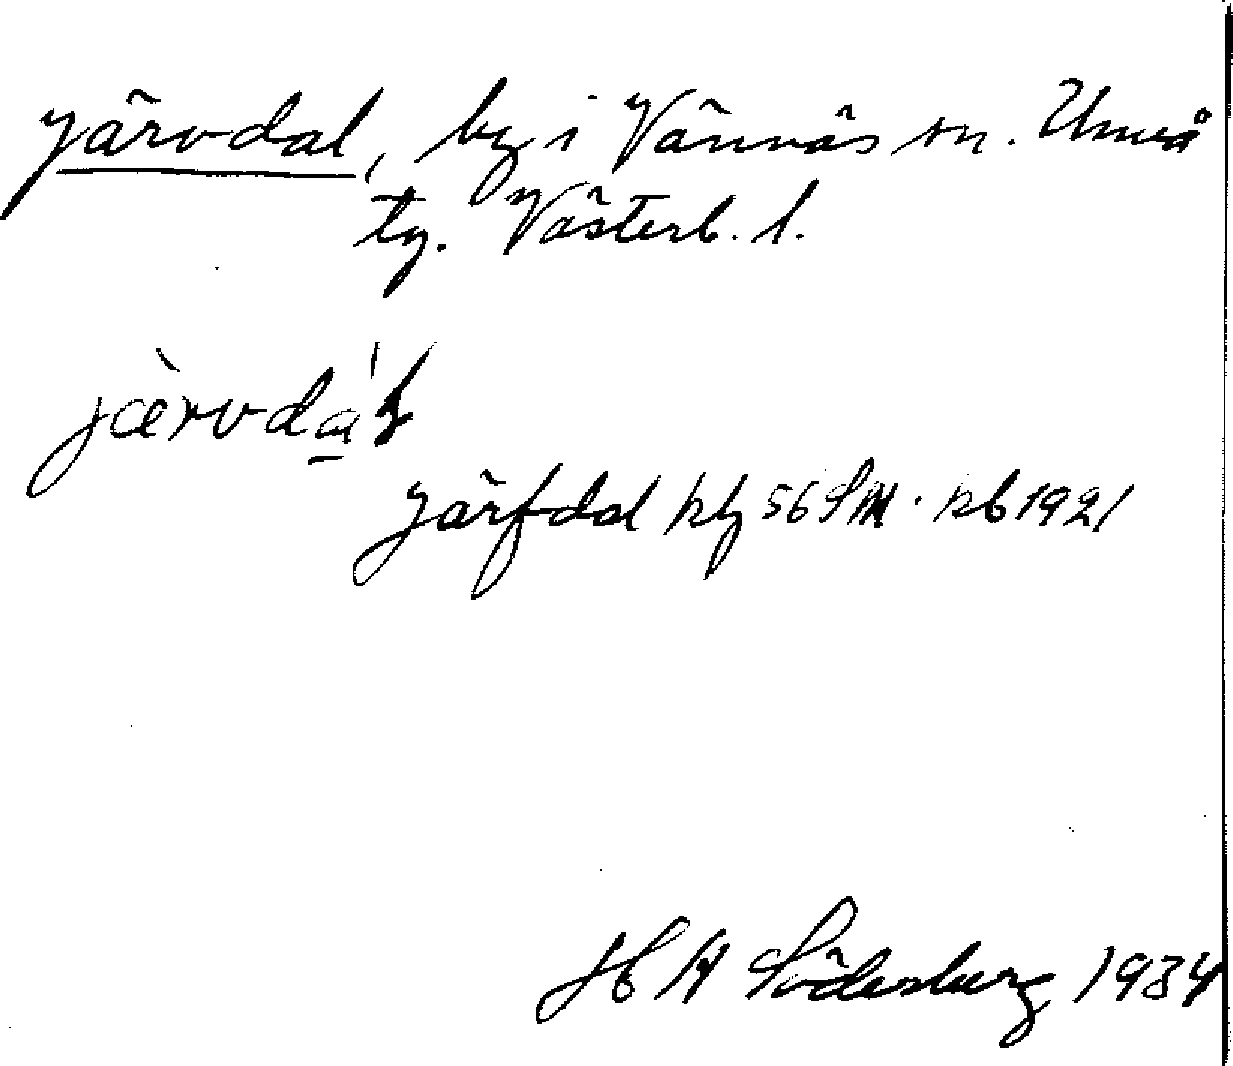 Järvdal, by i Vännäs sn. Umeå
tg. Västerb. l.
jærvdɑ́ɫ
Järfdal kbl 56 SM. kb 1921
H A Söderberg 1934